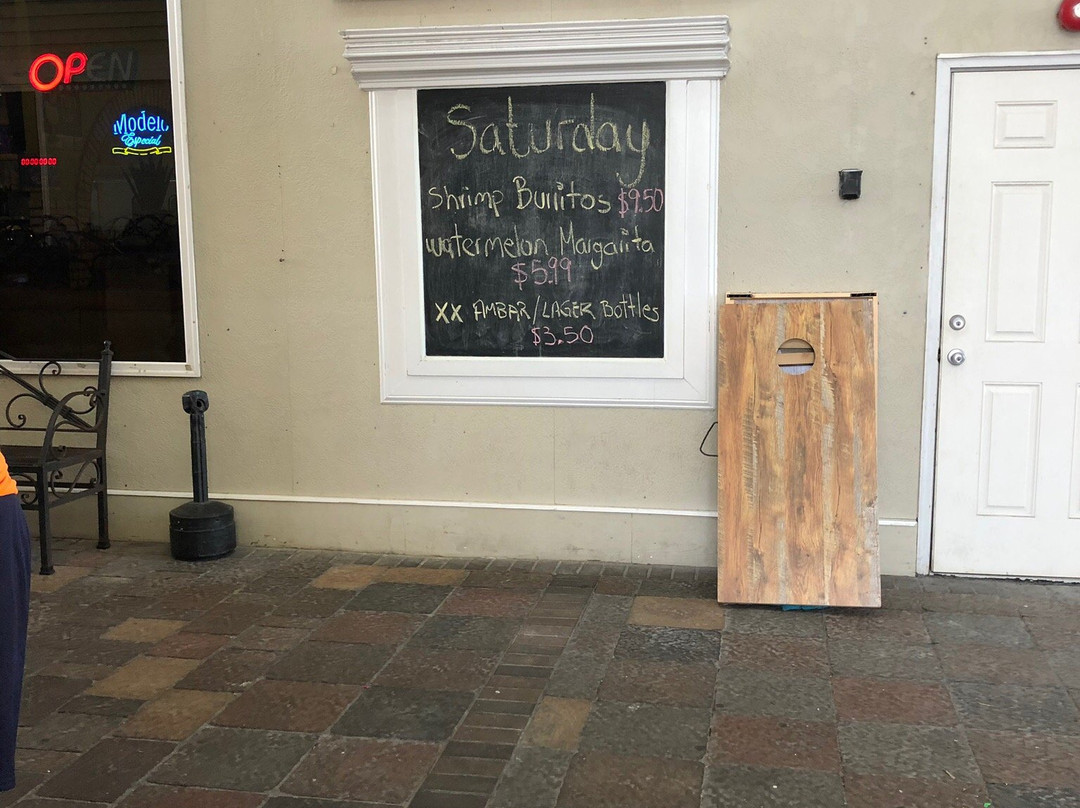 OPEN
Modelo
Especial
Saturday
Shrimp Burritos $9.50
watermelon Margarita
$5.99
XX AMBAR/LAGER Bottles
$3.50